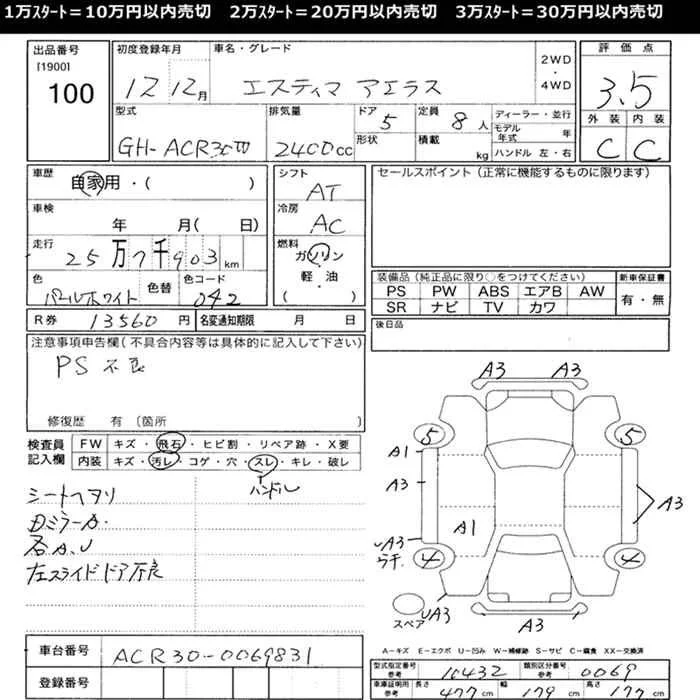 1万ｽﾀｰﾄ＝10万円以内売切　2万ｽﾀｰﾄ＝20万円以内売切　3万ｽﾀｰﾄ＝30万円以内売切
出品番号
[1900]
100
初度登録年月
12 12月
車名・グレード
エスティマ アエラス
2WD
・
4WD
評価点
3.5
外装 内装
C C
型式
GH-ACR30W
排気量
2400cc
ドア
5
形状
定員
8人
積載
kg
ディーラー・並行
モデル年式 年
ハンドル 左・右
車歴
自家用・( )
車検
年 月( 日)
走行
25万7千903km
色
パールホワイト
色替
色コード
042
シフト
AT
冷房
AC
燃料
ガソリン
軽・油
( )
セールスポイント(正常に機能するものに限ります)
装備品(純正品に限り○をつけてください)
PS PW ABS エアB AW
SR ナビ TV カワ
新車保証書
有・無
後日品
R券 13560円 名変通知期限 月 日
注意事項申告欄(不具合内容等は具体的に記入して下さい)
PS不良
修復歴 有〔箇所
検査員
記入欄
FW キズ・飛石・ヒビ割・リペア跡・X要
内装 キズ・汚レ・コゲ・穴・スレ・キレ・破レ
ハンドル
シートヘタリ
各A、U
左スライドドア不良
A3 A3
5 5
A1
A3
A3
A1
UA3
ウチ
4 4
UA3
スペア
A3
A－キズ E－エクボ U－凹み W－補修跡 S－サビ C－腐食 XX－交換済
車台番号
ACR30-0069831
登録番号
型式指定番号
参考
10432
類別区分番号
参考
0069
車庫証明用
参考
長さ
477cm
幅
179cm
高さ
177cm